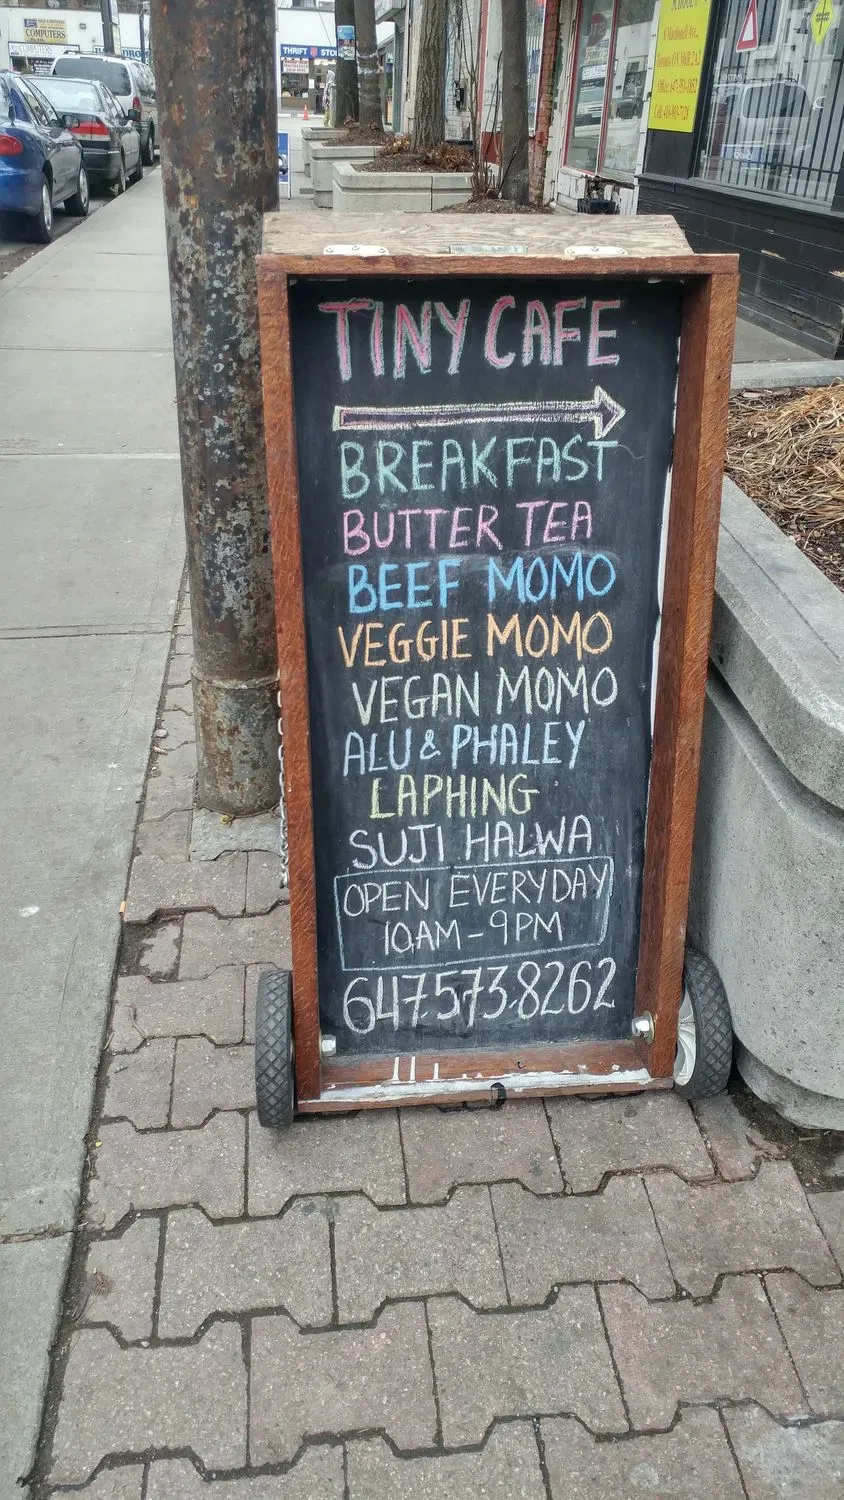 COMPUTERS
THRIFT STO
TINY CAFE
BREAKFAST
BUTTER TEA
BEEF MOMO
VEGGIE MOMO
VEGAN MOMO
ALU & PHALEY
LAPHING
SUJI HALWA
OPEN EVERYDAY
10AM - 9PM
647.573.8262